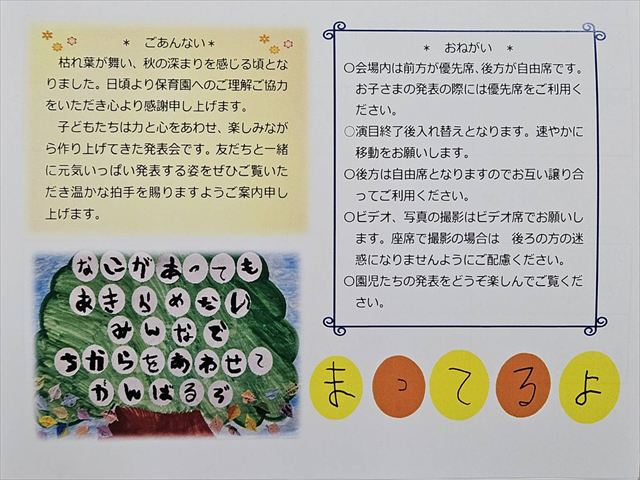 * ごあんない *
枯れ葉が舞い、秋の深まりを感じる頃とな
りました。日頃より保育園へのご理解ご協力
をいただき心より感謝申し上げます。
子どもたちは力と心をあわせ、楽しみなが
ら作り上げてきた発表会です。友だちと一緒
に元気いっぱい発表する姿をぜひご覧いた
だき温かな拍手を賜りますようご案内申し
上げます。
なにがあっても
あきらめない
みんなで
ちからをあわせて
がんばるぞ
* おねがい *
○会場内は前方が優先席、後方が自由席です。
お子さまの発表の際には優先席をご利用く
ださい。
○演目終了後入れ替えとなります。速やかに
移動をお願いします。
○後方は自由席となりますのでお互い譲り合
ってご利用ください。
○ビデオ、写真の撮影はビデオ席でお願いし
ます。座席で撮影の場合は 後ろの方の迷
惑になりませんようにご配慮ください。
○園児たちの発表をどうぞ楽しんでご覧くだ
さい。
まってるよ